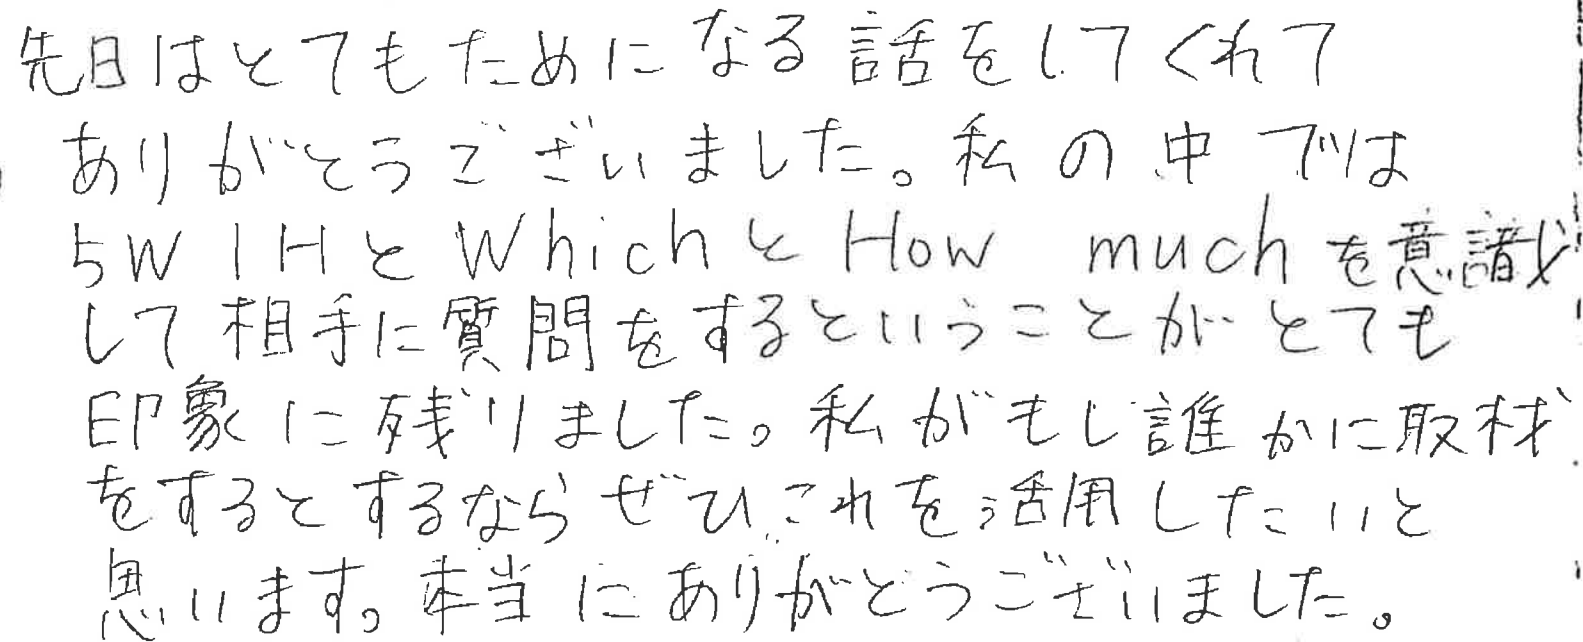 先日はとてもためになる話をしてくれて
ありがとうございました。私の中では
5W1HとWhichとHow muchを意識
して相手に質問をするということがとても
印象に残りました。私がもし誰かに取材
をするとするならぜひこれを活用したいと
思います。本当にありがとうございました。